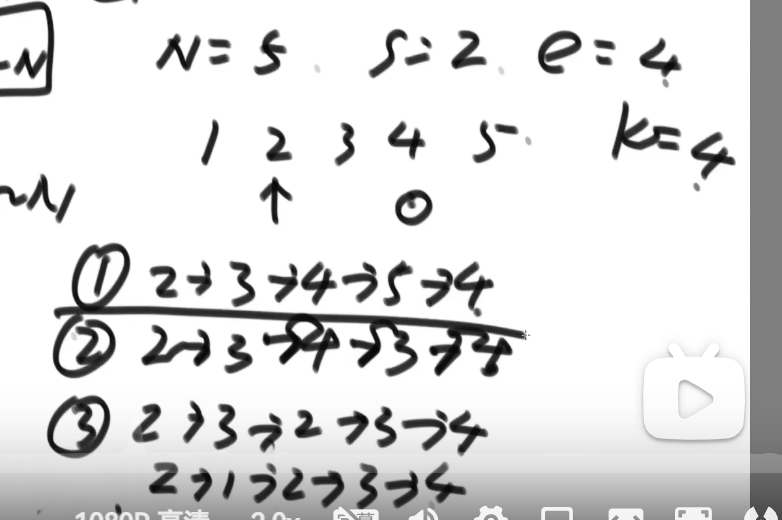 -N N=5 S=2 e=4
1 2 3 4 5 K=4
~N ↑ 0
① 2→3→4→5→4
② 2→3→4→3→4
③ 2→3→2→3→4
2→1→2→3→4
1080P 高清 2.0x